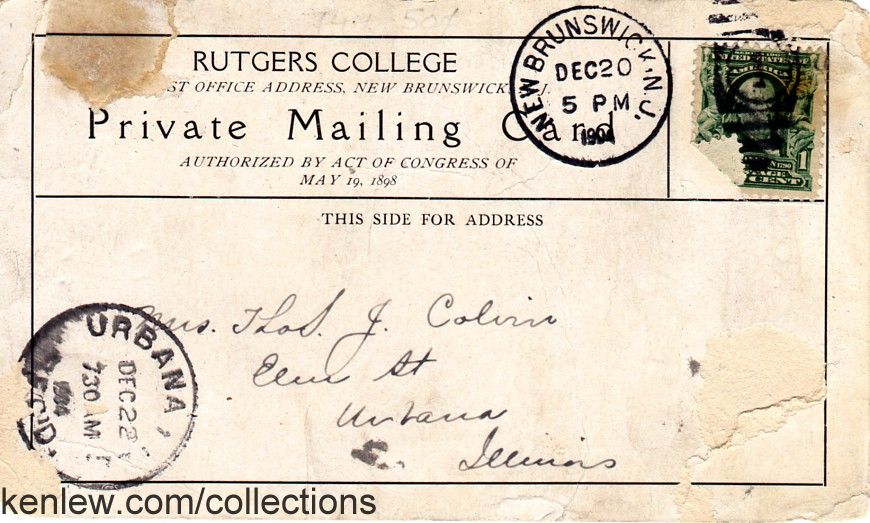 RUTGERS COLLEGE
ST OFFICE ADDRESS, NEW BRUNSWICK, J.
Private Mailing Card
AUTHORIZED BY ACT OF CONGRESS OF
MAY 19, 1898
NEW BRUNSWICK, N.J.
DEC 20
5 PM
1904
UNITED STATES OF
AMERICA
1
CENT
THIS SIDE FOR ADDRESS
Mrs. Thos. J. Colvin
Elm St
Urbana
Illinois
URBANA,
DEC 22
730 AM
1904
REC'D.
kenlew.com/collections